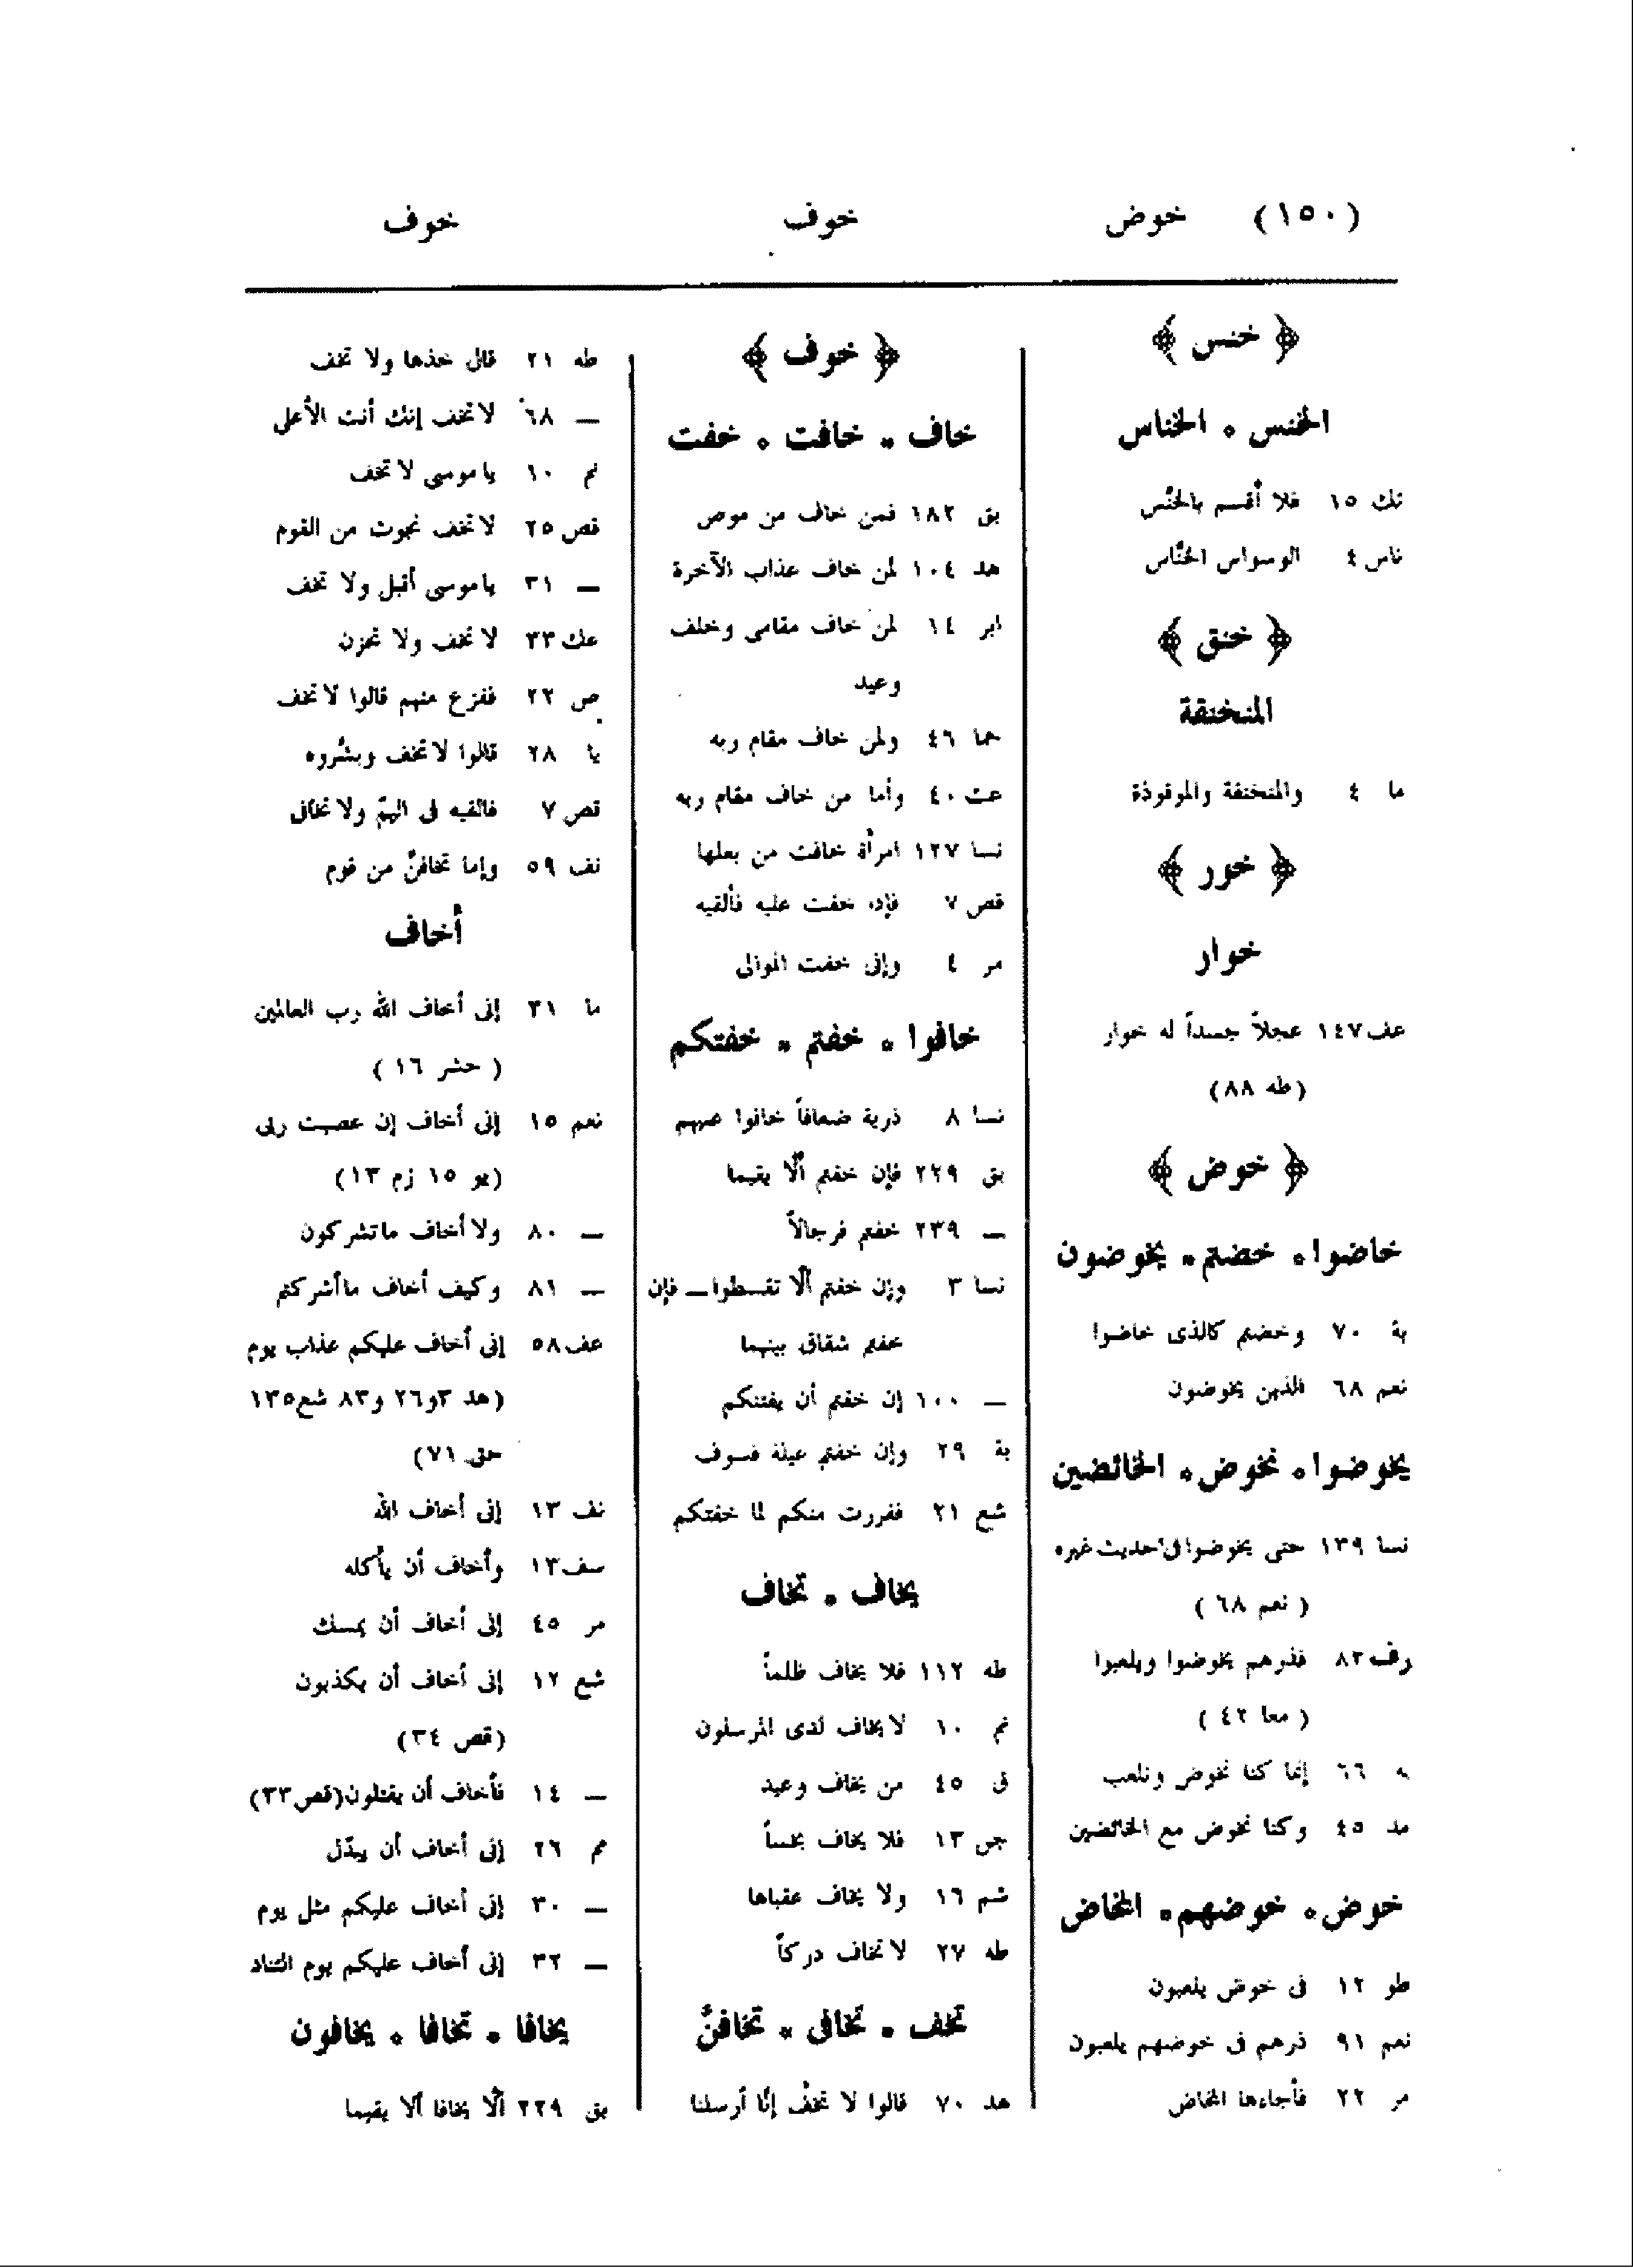 (١٥٠) خوض خوف خوف
﴿ خنس ﴾
الخنس ٠ الخناس
تك ١٥ فلا أقسم بالخنّس
ناس ٤ الوسواس الخنّاس
﴿ خنق ﴾
المنخنقة
ما ٤ والمنخنقة والموقوذة
﴿ خور ﴾
خوار
عف ١٤٧ عجلاً جسداً له خوار
(طه ٨٨)
﴿ خوض ﴾
خاضوا ٠ خضتم ٠ يخوضون
بة ٧٠ وخضتم كالذى خاضوا
نعم ٦٨ الذين يخوضون
يخوضوا ٠ نخوض ٠ الخائضين
نسا ١٣٩ حتى يخوضوا فى حديث غيره
( نعم ٦٨ )
رف ٨٣ فذرهم يخوضوا ويلعبوا
( معا ٤٢ )
٦٦ إنما كنا نخوض ونلعب
مد ٤٥ وكنا نخوض مع الخائضين
خوض ٠ خوضهم ٠ المخاض
طو ١٢ فى خوض يلعبون
نعم ٩١ ذرهم فى خوضهم يلعبون
مر ٢٢ فأجاءها المخاض
﴿ خوف ﴾
خاف ٠ خافت ٠ خفت
بق ١٨٢ فمن خاف من موص
هد ١٠٤ لمن خاف عذاب الآخرة
ابر ١٤ لمن خاف مقامى وخاف
وعيد
حما ٤٦ ولمن خاف مقام ربه
عت ٤٠ وأما من خاف مقام ربه
نسا ١٢٧ امرأة خافت من بعلها
قص ٧ فإذا خفت عليه فألقيه
مر ٤ وإنى خفت الموالى
خافوا ٠ خفتم ٠ خفتكم
نسا ٨ ذرية ضعافاً خافوا عليهم
بق ٢٢٩ فإن خفتم ألّا يقيما
— ٢٣٩ خفتم فرجالاً
نسا ٣ وإن خفتم ألّا تقسطوا — فإن
خفتم شقاق بينهما
— ١٠٠ إن خفتم أن يفتنكم
بة ٢٩ وإن خفتم عيلة فسوف
شع ٢١ ففررت منكم لما خفتكم
يخاف ٠ تخاف
طه ١١٢ فلا يخاف ظلماً
نم ١٠ لا يخاف لدى المرسلون
ق ٤٥ من يخاف وعيد
جن ١٣ فلا يخاف بخساً
شم ١٦ ولا يخاف عقباها
طه ٧٧ لا تخاف دركاً
تخف ٠ تخافى ٠ تخافنّ
هد ٧٠ قالوا لا تخفْ إنّا أرسلنا
طه ٢١ قال خذها ولا تخف
— ٦٨ لا تخف إنك أنت الأعلى
نم ١٠ ياموسى لا تخف
قص ٢٥ لا تخف نجوت من القوم
— ٣١ ياموسى أقبل ولا تخف
عك ٣٣ لا تخف ولا تحزن
ص ٢٢ ففزع منهم قالوا لا تخف
يا ٢٨ قالوا لا تخف وبشّروه
قص ٧ فالقيه فى اليمّ ولا تخافى
نف ٥٩ وإما تخافنّ من قوم
أخاف
ما ٣١ إنى أخاف الله رب العالمين
( حشر ١٦ )
نعم ١٥ إنى أخاف إن عصيت ربى
(يو ١٥ زم ١٣)
— ٨٠ ولا أخاف ما تشركون
— ٨١ وكيف أخاف ما أشركتم
عف ٥٨ إنى أخاف عليكم عذاب يوم
(هد ٣و٢٦ و٨٣ شع ١٣٥
حق ٧١)
نف ١٣ إنى أخاف الله
سف ١٣ وأخاف أن يأكله
مر ٤٥ إنى أخاف أن يمسك
شع ١٢ إنى أخاف أن يكذبون
(قص ٣٤)
— ١٤ فأخاف أن يقتلون (قص ٣٣)
مم ٢٦ إنى أخاف أن يبدّل
— ٣٠ إنى أخاف عليكم مثل يوم
— ٣٢ إنى أخاف عليكم يوم التناد
يخافا ٠ تخافا ٠ يخافون
بق ٢٢٩ ألّا يخافا ألا يقيما